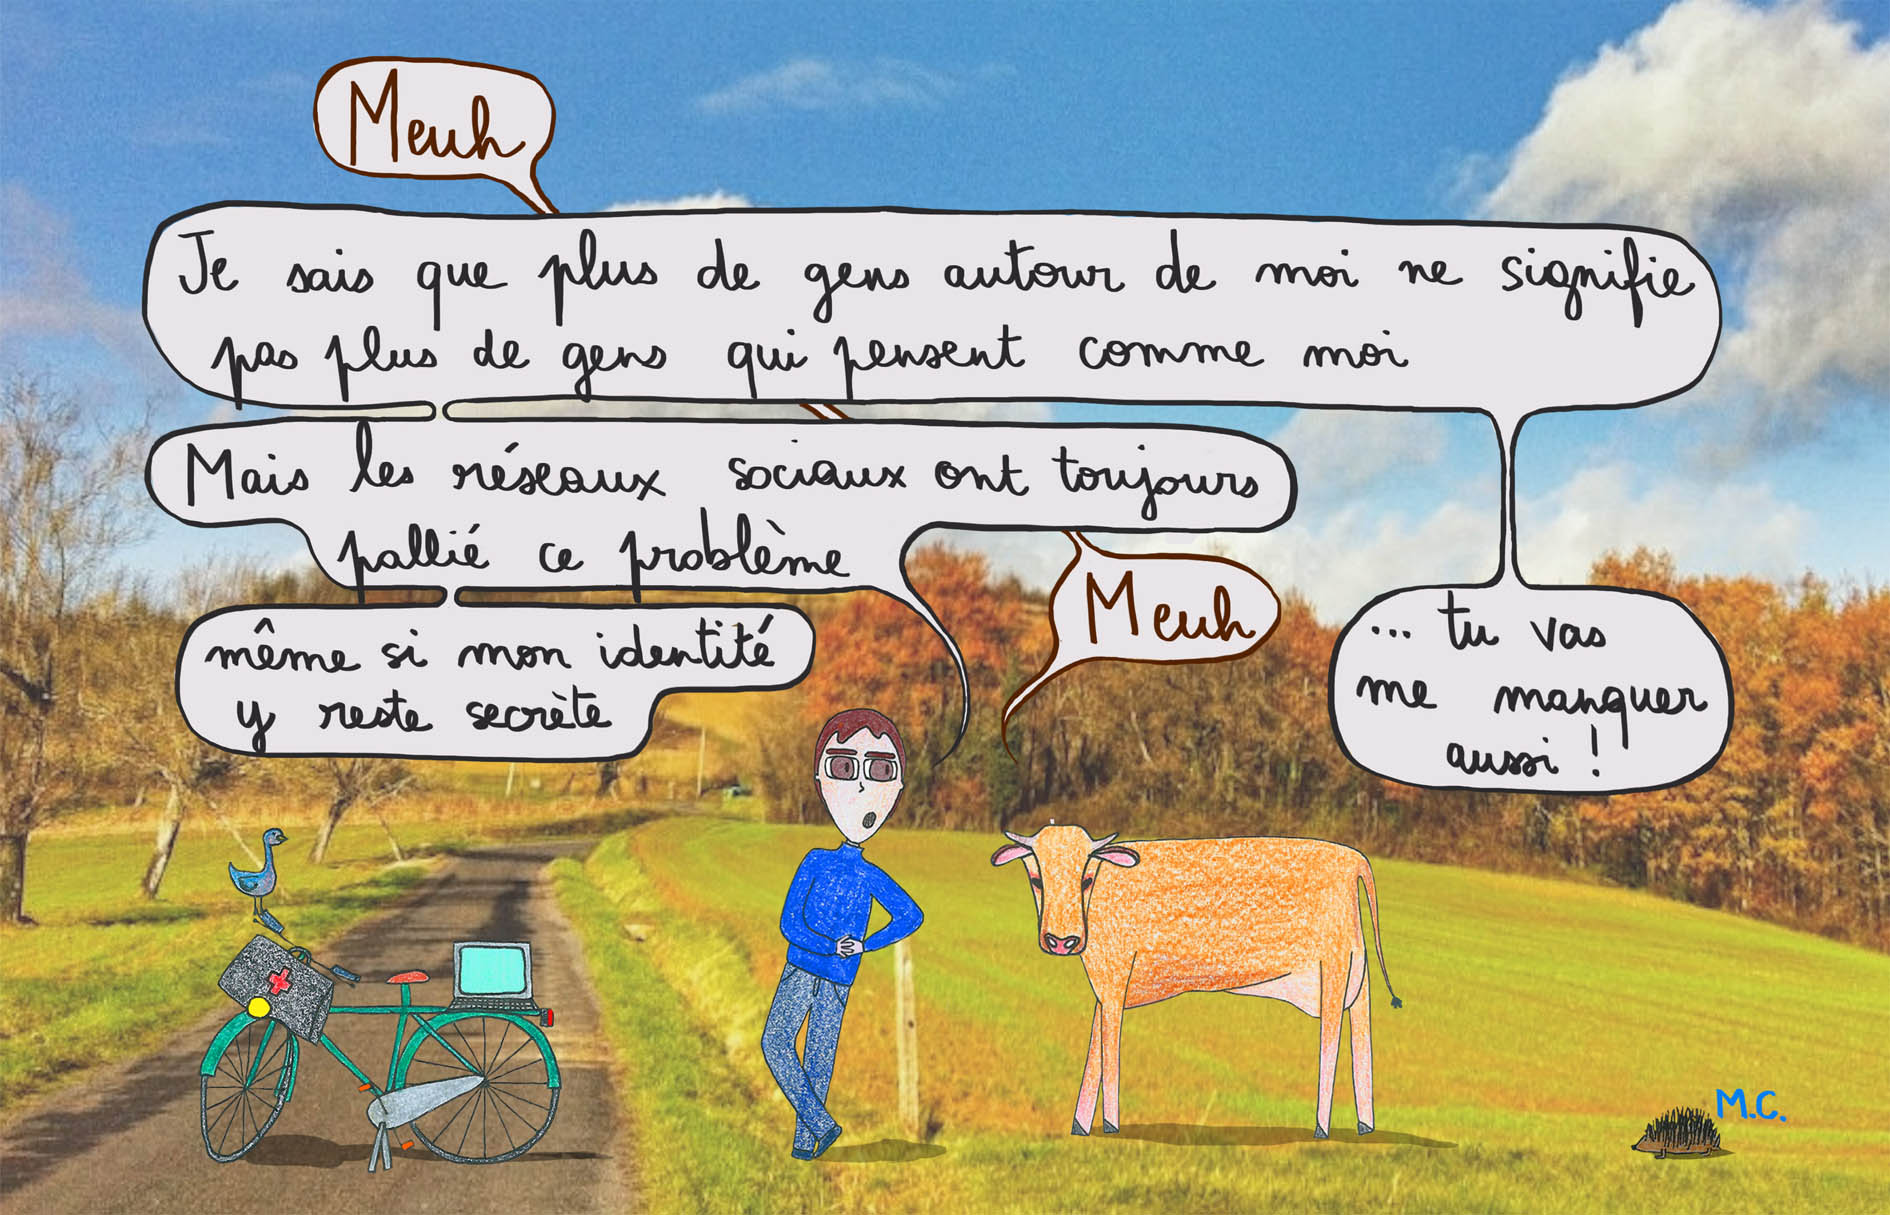 Meuh
Je sais que plus de gens autour de moi ne signifie
pas plus de gens qui pensent comme moi
Mais les réseaux sociaux ont toujours
pallié ce problème
même si mon identité
y reste secrète
Meuh
... tu vas
me manquer
aussi !
M.C.